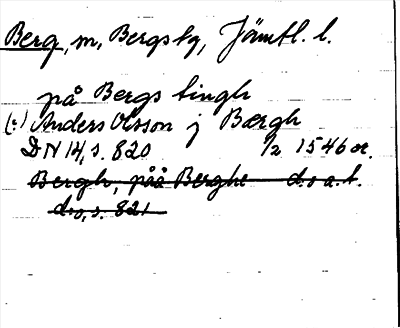 Berg, m, Bergs ty, Jämtl. l.
på Bergs tingh
(:) Anders Olsson j Bærgh
DN 14, s. 820 1/2 1546 or.
Bergh, påå Berghe d:o a. l.
d:o, s. 821